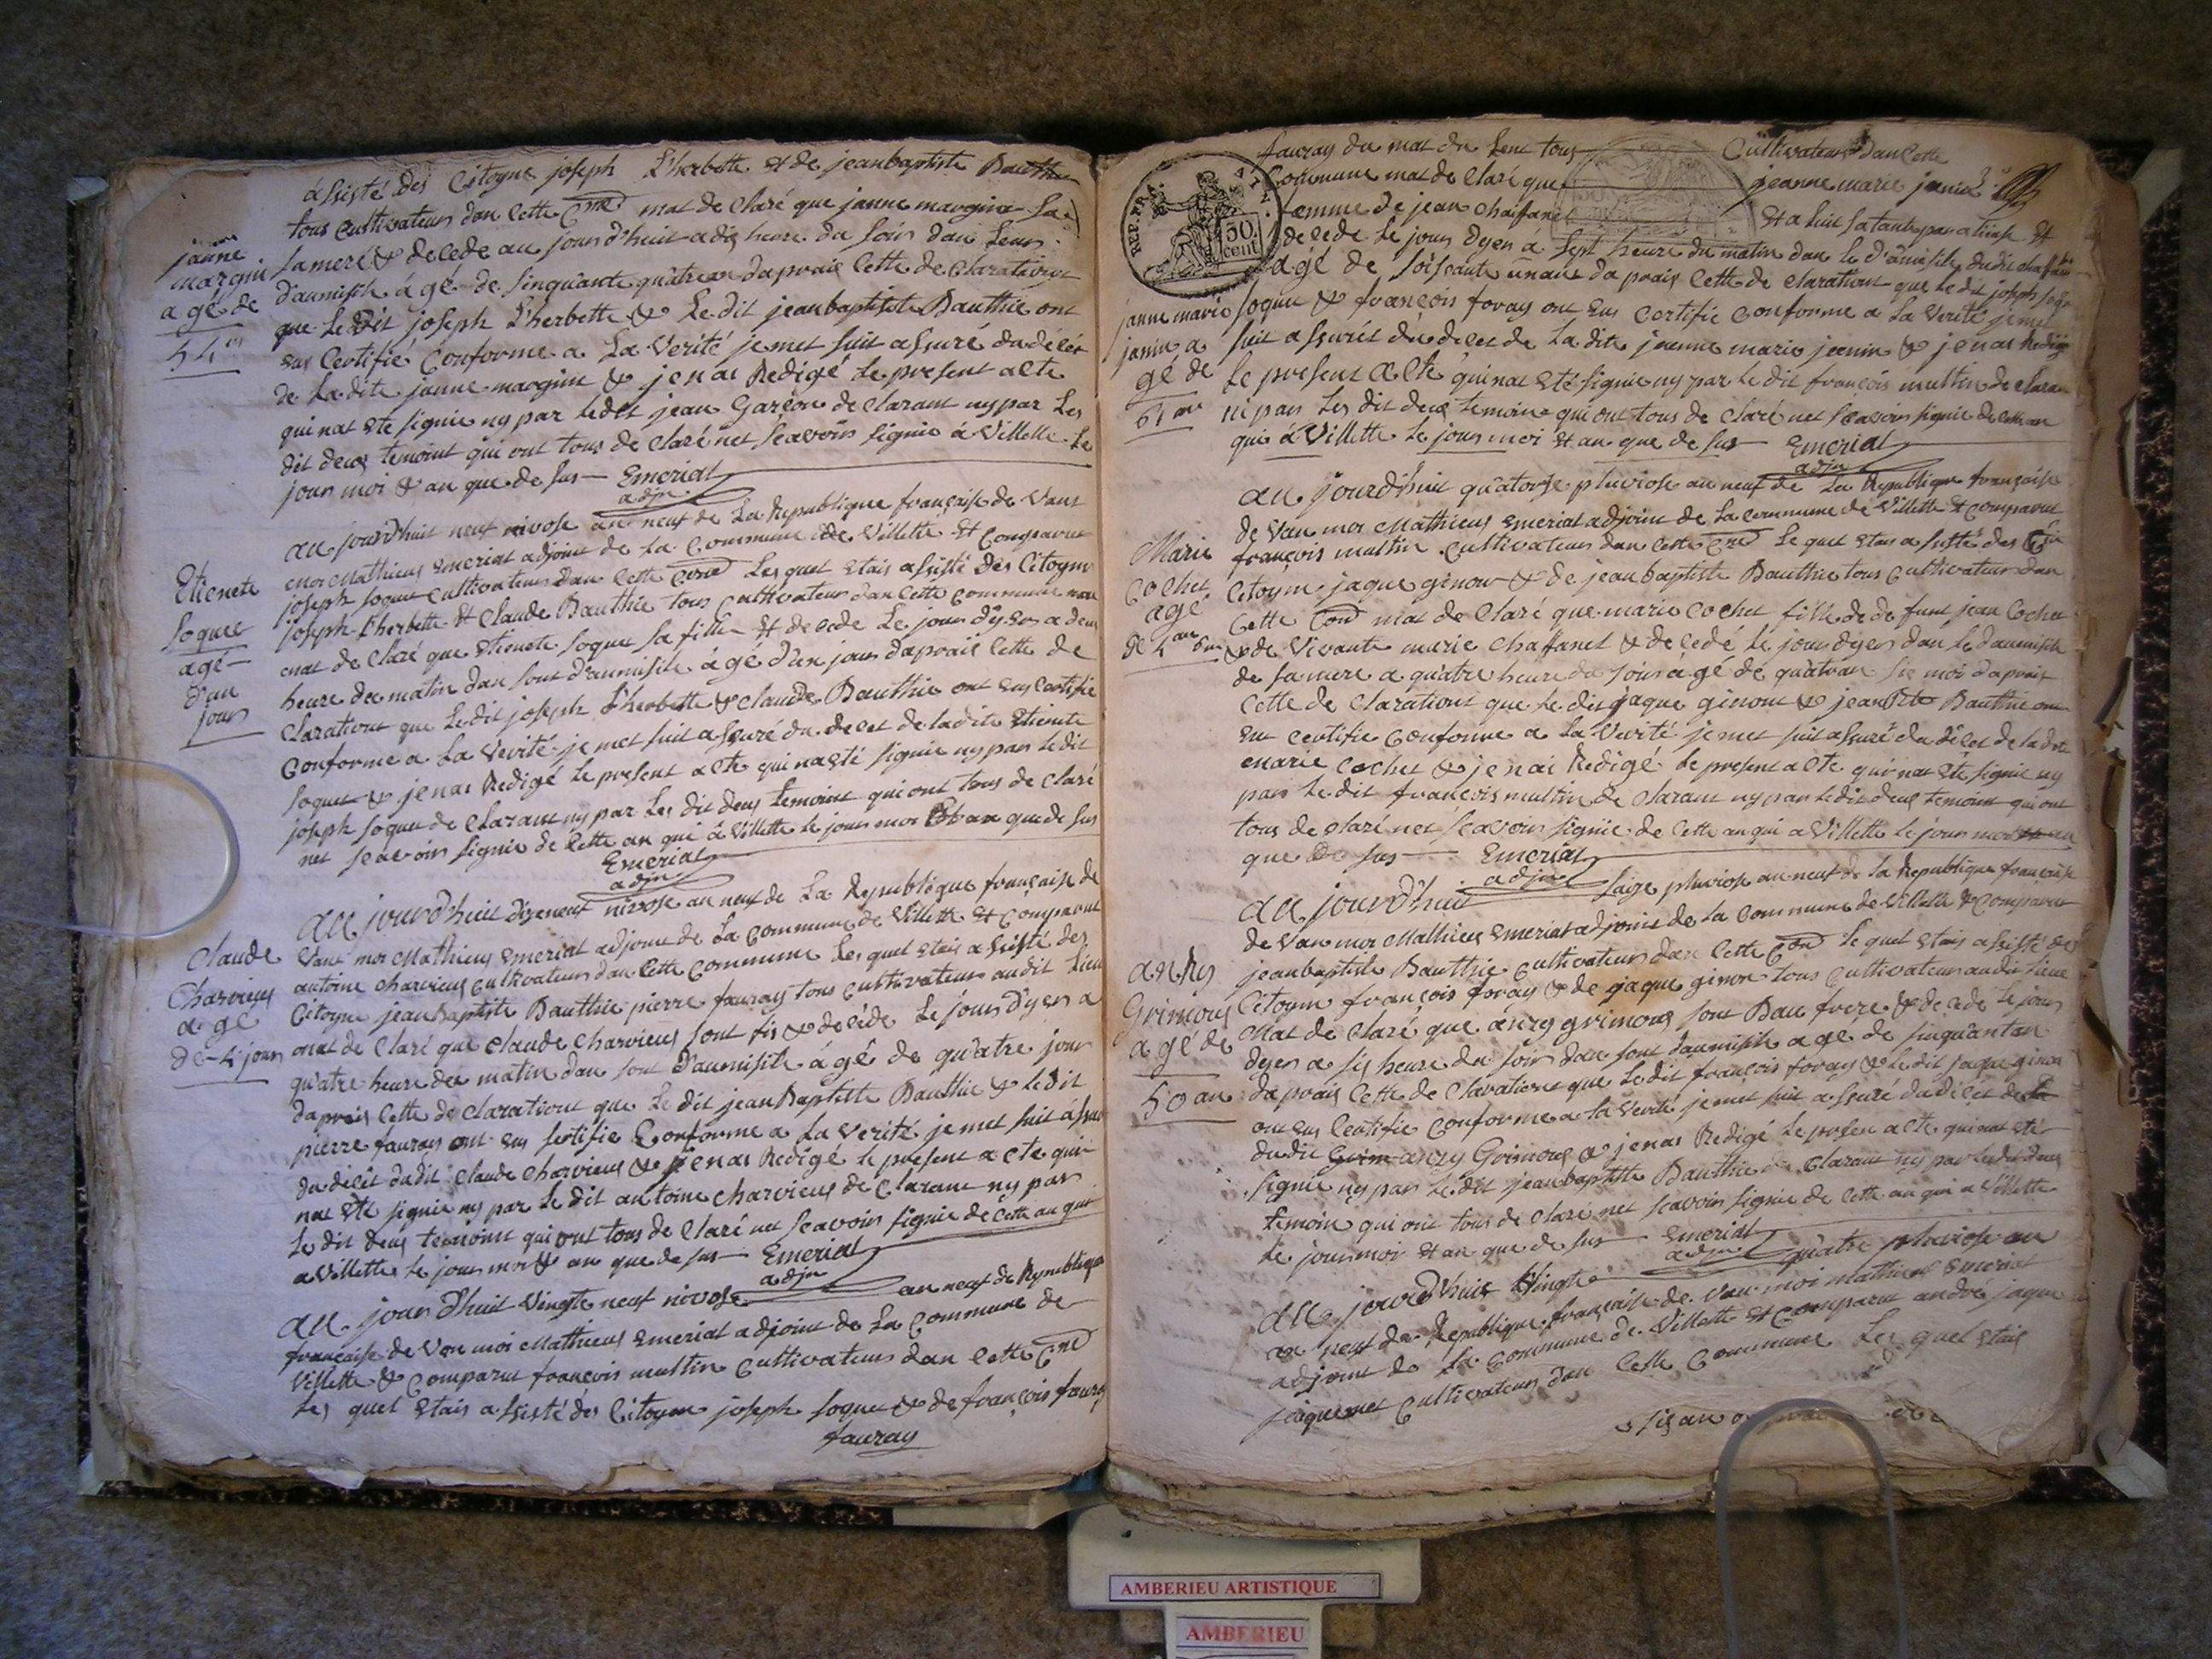 assisté des Citoyns joseph L'herbette et de jeanbaptiste Bauthie
tous cultivateur dan Cette Cne mat de Claré que janne margine sa
sa meré & decede au jourd'huit a dix heure du Soir dan Leur
daumisile á gé de sinquante quatre an dapraic Cette de Claratiout
que Le Dit joseph L'herbette & Le dit jeanbaptiste Bauthie ont
eus Certifié Conforme a La Verité je met suit assuré du décét
de La dite janne margine & jenai Redigé Le present acte
qui nat eté signie ny par ledit jean Garçon de Clarant ny par Les
dit deux temoint qui ont tous de Claré net Scavoir signie á Villette Le
jour moi & an que de sus Emeriat
adjn
janne
margin
a gé de
54 an
au jourd'huit neuf nivose an neuf de La Republique française de Vant
moi Mathieus Emeriat adjoint de La Commune de Villette Et Comparut
joseph soquet cultivateur dan Cette Cne Les quel Etais assisté Des Citoyns
joseph L'herbette Et Claude Bauthie tous cultivateur dan Cette Commune mon
mat de Claré que Etienete soque sa fille Et decede Le jour dyer a deux
heure deu matin dan sont d'aumisile á gé d'un jour dapraic Cette de
Claratiout que Ledit joseph L'herbette & Claude Bauthie ont eus Certifie
Conforme a La Verité je met suit assuré du decet de Ladite Etienete
soquet & jenai Redigé Le present acte qui nasté signie ny par Le dit
joseph soque de Clarant ny par Les dit deux temoint qui ont tous de claré
net scavoir signie de Cette an qui á Villette Le jour moi Et an que de sus
Emeriat
adjn
Etienete
soquee
agé
d'un
jour
au jourd'huit dizeneuf nivose an neuf de La Republique française de
Vant moi Mathieus Emeriat adjoint de La Commune de Villette Et Comparut
antoine charvieux cultivateur dan Cette Commune Les quel Etais assisté des
Citoyns jean Baptiste Bauthie pierre fauray tous cultivateur audit Lieu
mat de Claré que Claude Charvieux sont fis & decéde Le jour d'yer a
qu'atre heure deu matin dan sont d'aumisile á gé de qu'atre jour
dapraic Cette de Claratiout que Le dit jean Baptiste Bauthie & Ledit
pierre fauray ont eus sertifie Conforme a La Verité je met suit assuré
du décét dudit Claude Charvieux & jenai Redigé Le present acte qui
nat Eté signie ny par Le dit antoine charvieux de Clarant ny par
Le dit Deux temoint qui ont tous de Claré net Scavoir signie de Cette an qui
a Villette Le jour moi & an que de sus Emeriat
adjn
Claude
Charvieux
a gé
de 4 jour
au jour d'huit Vingte neuf nivose an neuf de Republique
française de Van moi Mathieus Emeriat adjoint de La Commune de
Villette & Comparut françois multin cultivateur dan Cette Cne
Les quel Etais assisté des Citoyen joseph soquet & de françois fauray
fauray
fauray du mat du Lent tous Cultivateur dan Cette
Commune mat de Claré que jeanne marie janin
femme de jean chaffanet Et a
decede Le jour dyer á sept heure du matin dan Le d'aumisile dudit chaffanet
agé de soissante un an dapraic Cette de Claratiout que Le dit joseph
soquee & françois foray ont eus Certifie Conforme a La Verité je met
suit assurét du decet de La dite jeanne marie janin & jenai Redigé
Le present acte qui nat eté signie ny par Le dit françois multin de clarant
ni par Les dit deux temoin qui ont tous de Claré net scavoir signie de Cette an
qui á Villette Le jour moi Et an que de sus Emeriat
adjn
REP. FRA.
50
cent
janne marie
janin a
gé de
61 an
au jourd'hui qu'atorze pluviose an neuf de La Republique française
de Van moi Mathieus Emeriat adjoint de La Commune de Villette Et Comparut
françois multin Cultivateur dan Cette Cne Le quel Etais assisté des
Citoyns jaque ginon & de jean baptiste Bauthie tous cultivateur dan
Cette Cne mat de Claré que marie Cochet fille de de funt jean Cochet
& de Vivante marie Chaffanet & decedé Le jour dyer dan Le daumisile
de sa mere a qu'atre heure du soir a gé de quatran sie moi dapraic
Cette de Claratiout que Le dit jaque ginout & jean Bte Bauthie ont
eut certifie Conforme a La Verité je met suit assuré du decet de la dite
marie Cochet & jenai Redigé Le present acte qui nat ete signie ny
par Le dit françois multin de Clarant ny par Ledit deux temoint qui ont
tous de claré net scavoir signie de Cette an qui a Villette Le jour moi an
que de sus Emeriat
adjn
Marie
Cochet
agé
de 4 an 6 m
au jourd'hui saize pluviose an neuf de La Republique française
de Van moi Mathieus Emeriat adjoint de La Commune de Villette & Comparut
jeanbaptiste Bauthie cultivateur dan Cette Cne Le quel Etais assisté de
Citoyns françois foray & de jaque ginon tous cultivateur audit Lieu
Mat de Claré que ánry grimoux sont Bau frere & decede Le jour
dyer a six heure du soir dan sont daumisile a gé de sinquantan
dapraic Cette de Claratiout que Le dit françois foray & Le dit jaque ginon
ont eus Certifie Conforme a La Verité je met suit assuré du decét de La
du dit Grim anry Grimoux & jenai Redigé Le presen acte qui nat eté
signie ny par Le dit jeanbaptiste Bauthie de Clarant ny par Ledit deux
temoin qui ont tous de Claré net scavoir signie de Cette an qui a Villette
Le jour moi Et an que de sus Emeriat
adjn
anry
Grimoux
a gé de
50 an
au jourd'huit Vingte quatre pluviose an
an neuf de Republique française de Van moi mathieus Emeriat
adjoint de La Commune de Villette Et Comparut andré jaque
cultivateur dan Cette Commune Les quel Etais
AMBERIEU ARTISTIQUE
AMBERIEU